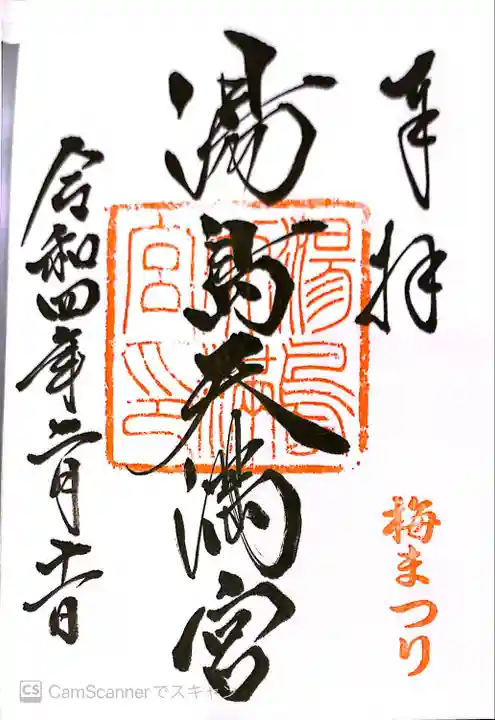 奉拝
梅まつり
湯島天満宮
湯島天満宮印
令和四年二月十一日
CS CamScannerでスキャン